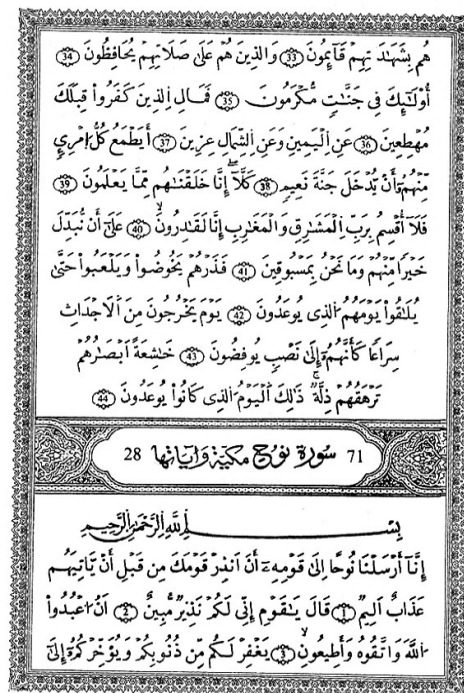 هُم بِشَهَٰدَتِهِمْ قَآئِمُونَ 33 وَالذِينَ هُمْ عَلَىٰ صَلَاتِهِمْ يُحَافِظُونَ 34
أُوْلَٰٓئِكَ فِي جَنَّٰتٖ مُّكْرَمُونَ 35 فَمَالِ الذِينَ كَفَرُواْ قِبَلَكَ
مُهْطِعِينَ 36 عَنِ الْيَمِينِ وَعَنِ الشِّمَالِ عِزِينَ 37 أَيَطْمَعُ كُلُّ امْرِيٕٖ
مِّنْهُمُۥٓ أَنْ يُّدْخَلَ جَنَّةَ نَعِيمٖ 38 كَلَّآ إِنَّا خَلَقْنَٰهُم مِّمَّا يَعْلَمُونَ 39
فَلَآ أُقْسِمُ بِرَبِّ الْمَشَٰرِقِ وَالْمَغَٰرِبِ إِنَّا لَقَٰدِرُونَ 40 عَلَىٰٓ أَن نُّبَدِّلَ
خَيْراٗ مِّنْهُمْ وَمَا نَحْنُ بِمَسْبُوقِينَ 41 فَذَرْهُمْ يَخُوضُواْ وَيَلْعَبُواْ حَتَّىٰ
يُلَٰقُواْ يَوْمَهُمُ الذِي يُوعَدُونَ 42 يَوْمَ يَخْرُجُونَ مِنَ الَاجْدَاثِ
سِرَاعاٗ كَأَنَّهُمُۥٓ إِلَىٰ نَصْبٖ يُوفِضُونَ 43 خَٰشِعَةً أَبْصَٰرُهُمْ
تَرْهَقُهُمْ ذِلَّةٞ ذَٰلِكَ الْيَوْمُ الذِي كَانُواْ يُوعَدُونَ 44
71 سُورَة نُوح مكية وءاياتها 28
بِسْمِ اللَّهِ الرَّحْمَٰنِ الرَّحِيمِ
إِنَّآ أَرْسَلْنَا نُوحاً اِلَىٰ قَوْمِهِۦٓ أَنَ انذِرْ قَوْمَكَ مِن قَبْلِ أَنْ يَّاتِيَهُمْ
عَذَابٌ اَلِيمٞ 1 قَالَ يَٰقَوْمِ إِنِّي لَكُمْ نَذِيرٞ مُّبِينٌ 2 اَنُ اعْبُدُواْ
اللَّهَ وَاتَّقُوهُ وَأَطِيعُونِ 3 يَغْفِرْ لَكُم مِّن ذُنُوبِكُمْ وَيُؤَخِّرْكُمُۥٓ إِلَىٰٓ